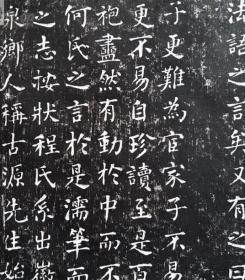 法語之言矣又有之
子更難為宦家子不易
更不易自珍讀至是
袍盡然有動於中而不
何氏之言於是濡筆而
之志按狀程氏系出徽
泉鄉人稱古源先生始